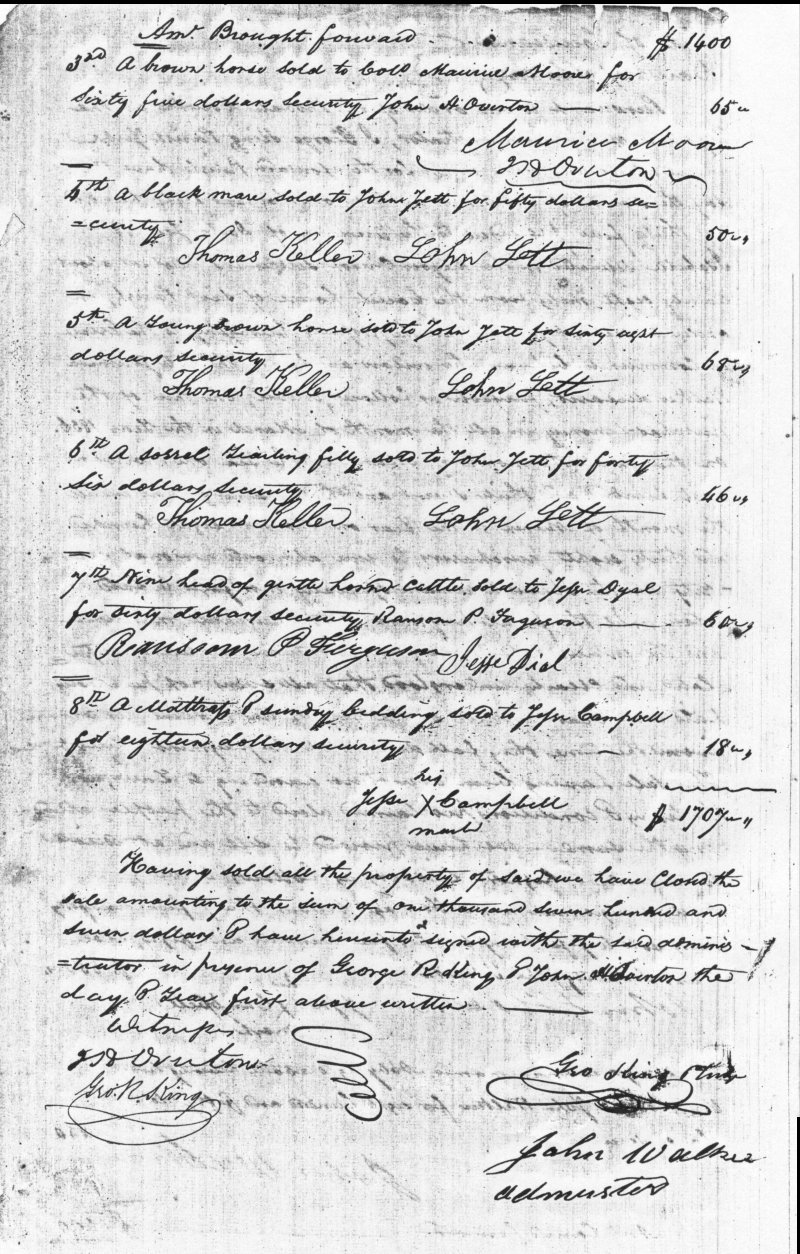 Amt. Brought forward $ 1400
3rd A brown horse sold to Colo. Maurice Moore for
Sixty five dollars Security John H. Overton — 65 "
Maurice Moore
J H Overton
4th A black mare sold to John Jett for fifty dollars se=
=curity 50 "
Thomas Keller John Jett
5th A Young brown horse sold to John Jett for Sixty eight
dollars security 68 "
Thomas Keller John Jett
6th A sorrel Yearling filly sold to John Jett for forty
Six dollars Security 46 "
Thomas Keller John Jett
7th Nine head of gentle horned cattle sold to Jesse Dyal
for Sixty dollars security Ransom P. Faguson — 60 "
Ranssom P Ferguson Jesse Dial
8th A Mattrass & sunday bedding sold to Jesse Campbell
for eighteen dollars security — 18 "
his
Jesse X Campbell $ 1707 "
mark
Having sold all the property of said we have Closd the
sale amounting to the sum of one thousand seven hundred and
seven dollars & have hereunto signed with the said adminis-
=trator in presence of George R. King & John H Overton the
day & Year first above written. —
Witness
J H Overton
Geo. R. King
Geo King
John Walker
admnster